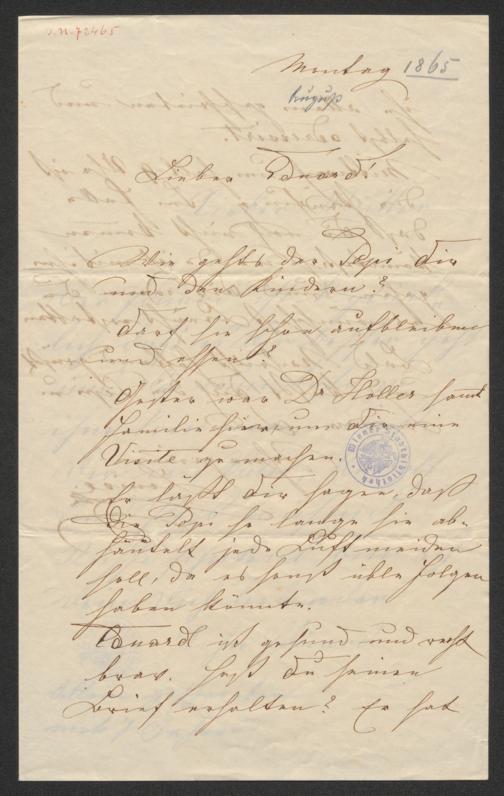 I.N. 72465
Montag 1865
August
Lieber Eduard!
Wie gehts der Pepi dir
und den Kindern?
darf sie schon aufbleiben
und essen?
Gester war Dr Holler sammt
Familie hier um dir eine
Visite zu machen.
Er läßt dir sagen, daß
die Pepi so lange sie ab-
häutelt jede Luft meiden
soll, da es sonst üble Folgen
haben könnte.
Eduardl ist gesund und recht
brav. Hast du seinen
Brief erhalten? Er hat
Wiener Stadtbibliothek